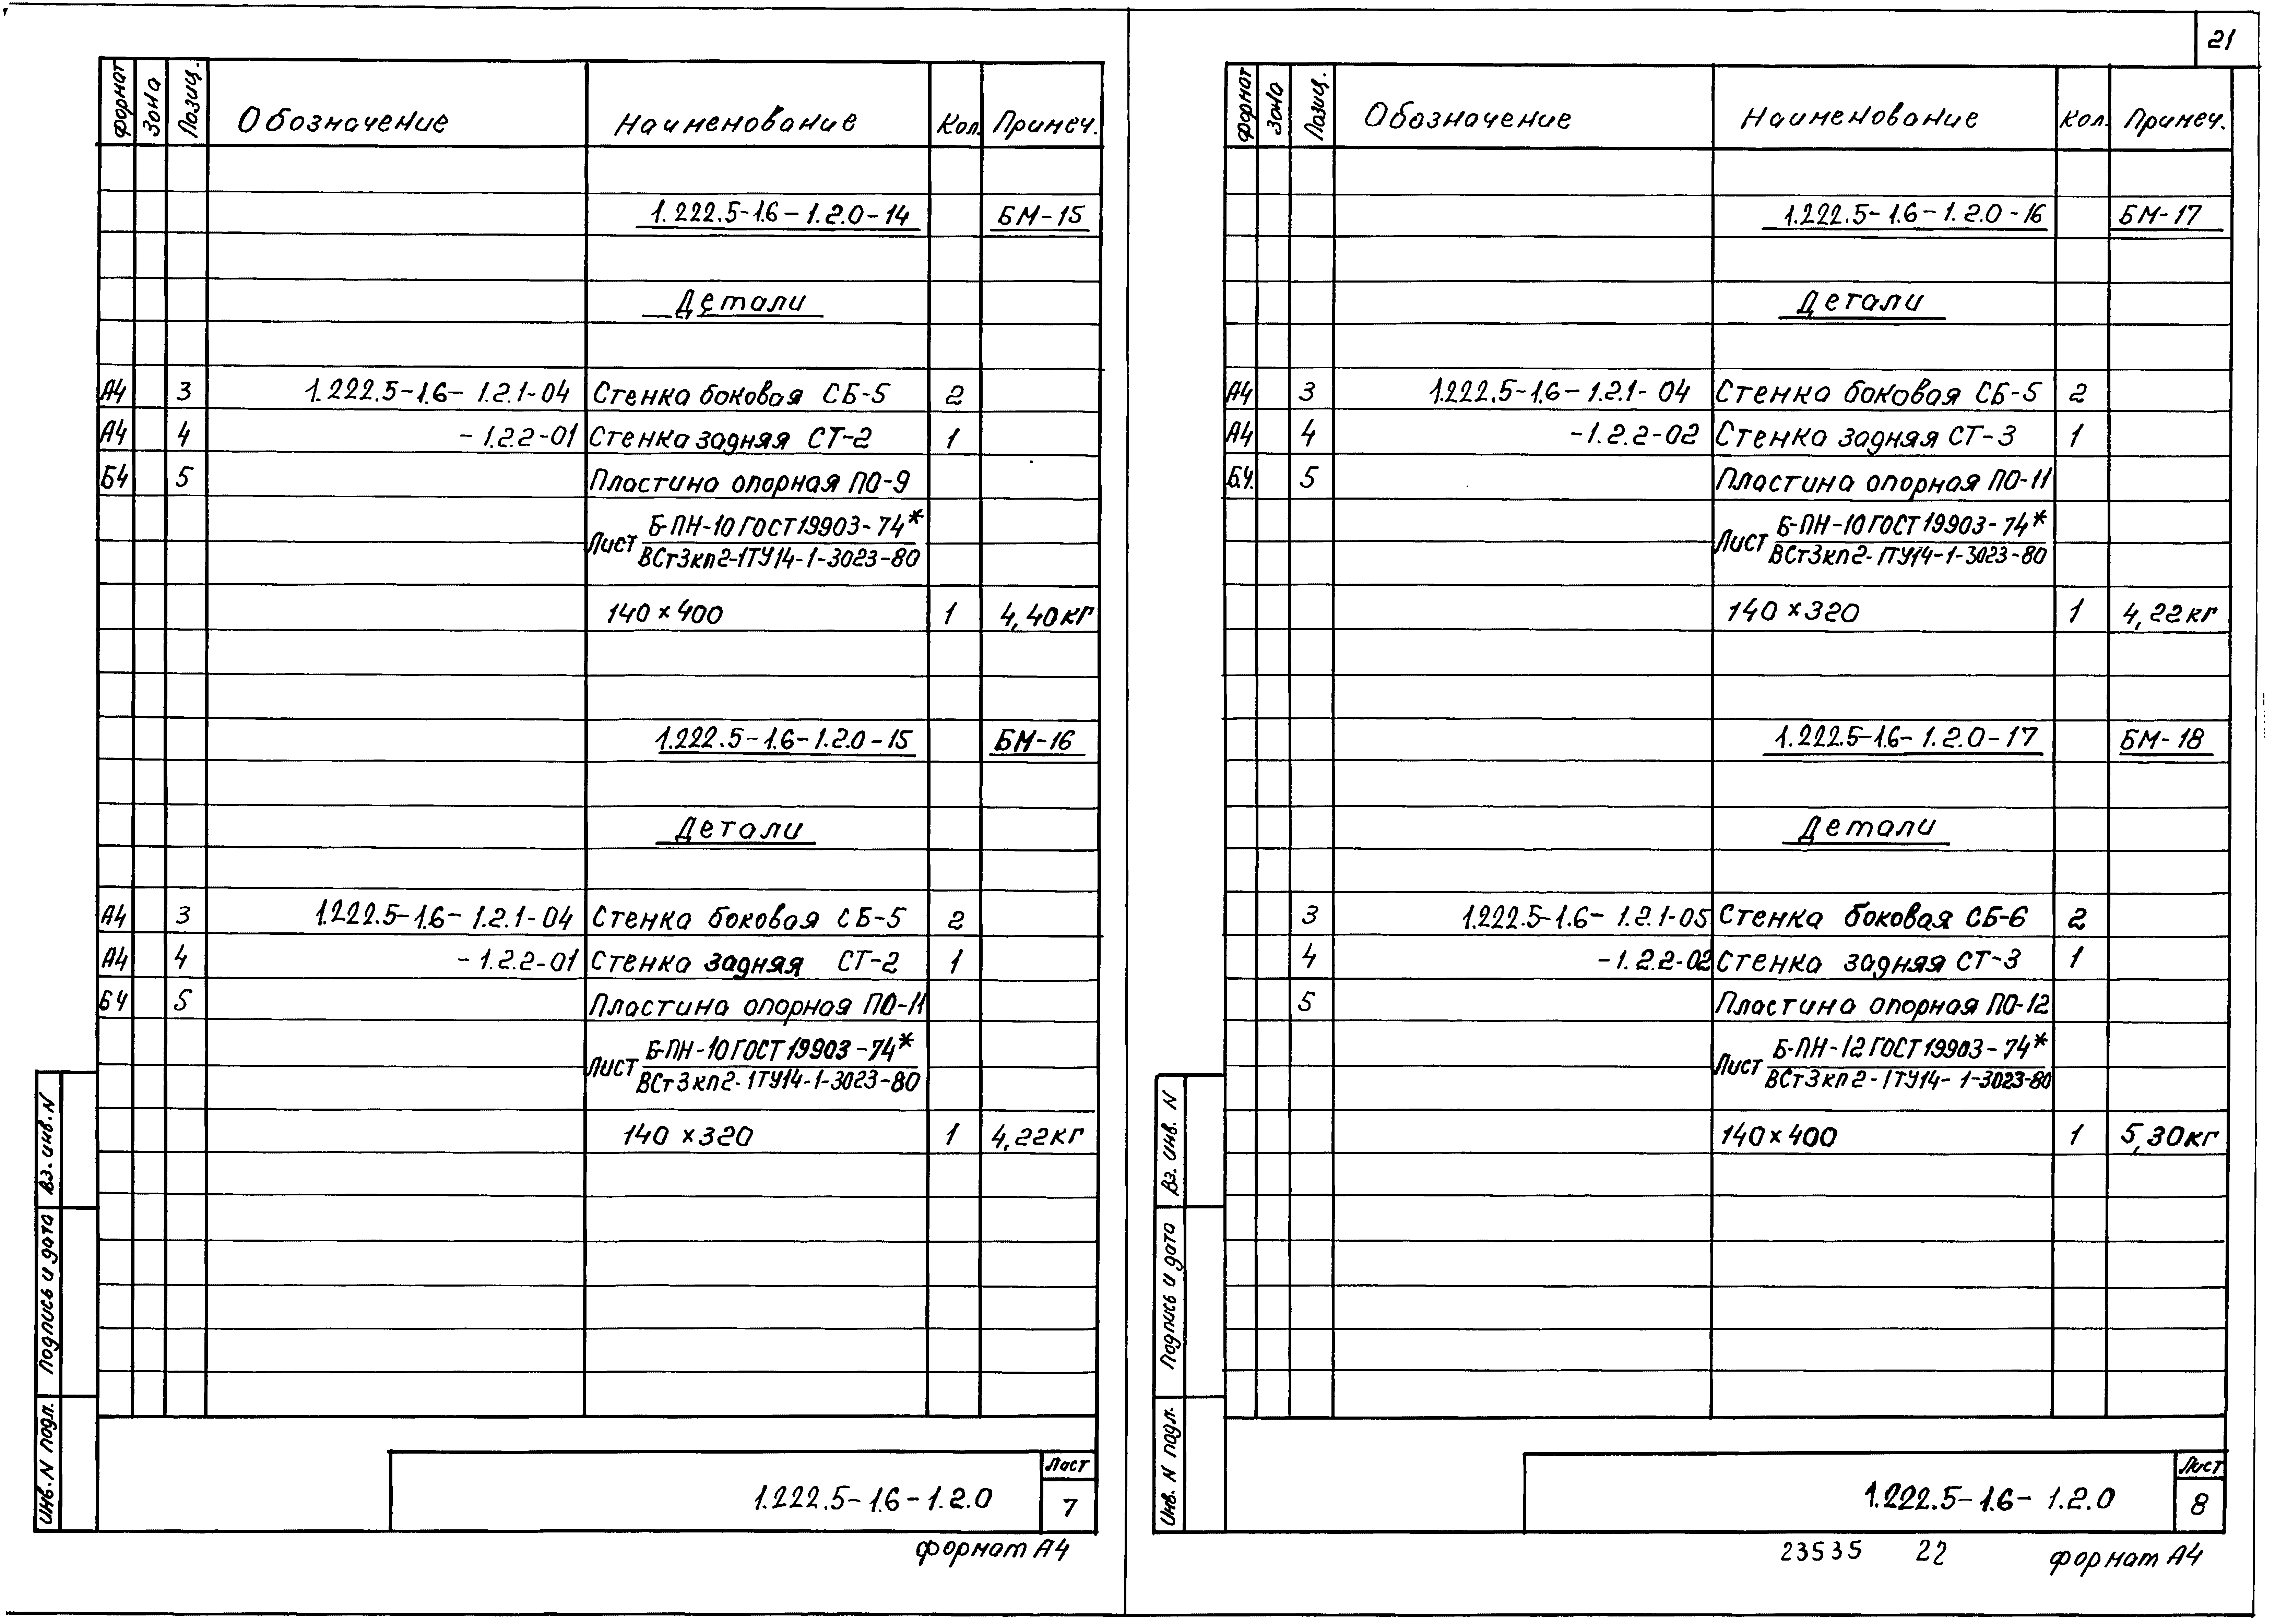 21
Формат Зона Позиц. Обозначение Наименование Кол. Примеч.
1.222.5-1.6-1.2.0-14 БМ-15
Детали
А4 3 1.222.5-1.6-1.2.1-04 Стенка боковая СБ-5 2
А4 4 -1.2.2-01 Стенка задняя СТ-2 1
БЧ 5 Пластина опорная ПО-9
Лист Б-ПН-10 ГОСТ 19903-74*
ВСт3кп2-1ТУ14-1-3023-80
140×400 1 4,40кг
1.222.5-1.6-1.2.0-15 БМ-16
Детали
А4 3 1.222.5-1.6-1.2.1-04 Стенка боковая СБ-5 2
А4 4 -1.2.2-01 Стенка задняя СТ-2 1
БЧ 5 Пластина опорная ПО-11
Лист Б-ПН-10 ГОСТ 19903-74*
ВСт3кп2-1ТУ14-1-3023-80
140×320 1 4,22кг
Вз. инв. N
Подпись и дата
Инв. N подл.
1.222.5-1.6-1.2.0
Лист
7
формат А4
Формат Зона Позиц. Обозначение Наименование Кол. Примеч.
1.222.5-1.6-1.2.0-16 БМ-17
Детали
А4 3 1.222.5-1.6-1.2.1-04 Стенка боковая СБ-5 2
А4 4 -1.2.2-02 Стенка задняя СТ-3 1
Б.Ч. 5 Пластина опорная ПО-11
Лист Б-ПН-10 ГОСТ 19903-74*
ВСт3кп2-1ТУ14-1-3023-80
140×320 1 4,22кг
1.222.5-1.6-1.2.0-17 БМ-18
Детали
3 1.222.5-1.6-1.2.1-05 Стенка боковая СБ-6 2
4 -1.2.2-02 Стенка задняя СТ-3 1
5 Пластина опорная ПО-12
Лист Б-ПН-12 ГОСТ 19903-74*
ВСт3кп2-1ТУ14-1-3023-80
140×400 1 5,30кг
Вз. инв. N
Подпись и дата
Инв. N подл.
1.222.5-1.6-1.2.0
Лист
8
23535 22 формат А4